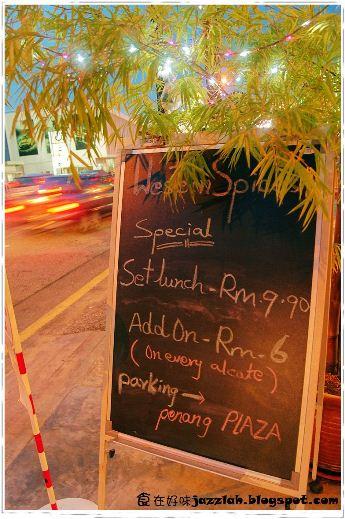 Western Spice
Special
Set lunch - Rm. 9.90
Add On - Rm - 6
( On every alcate )
parking →
penang PLAZA
食在好味 jazzlah.blogspot.com